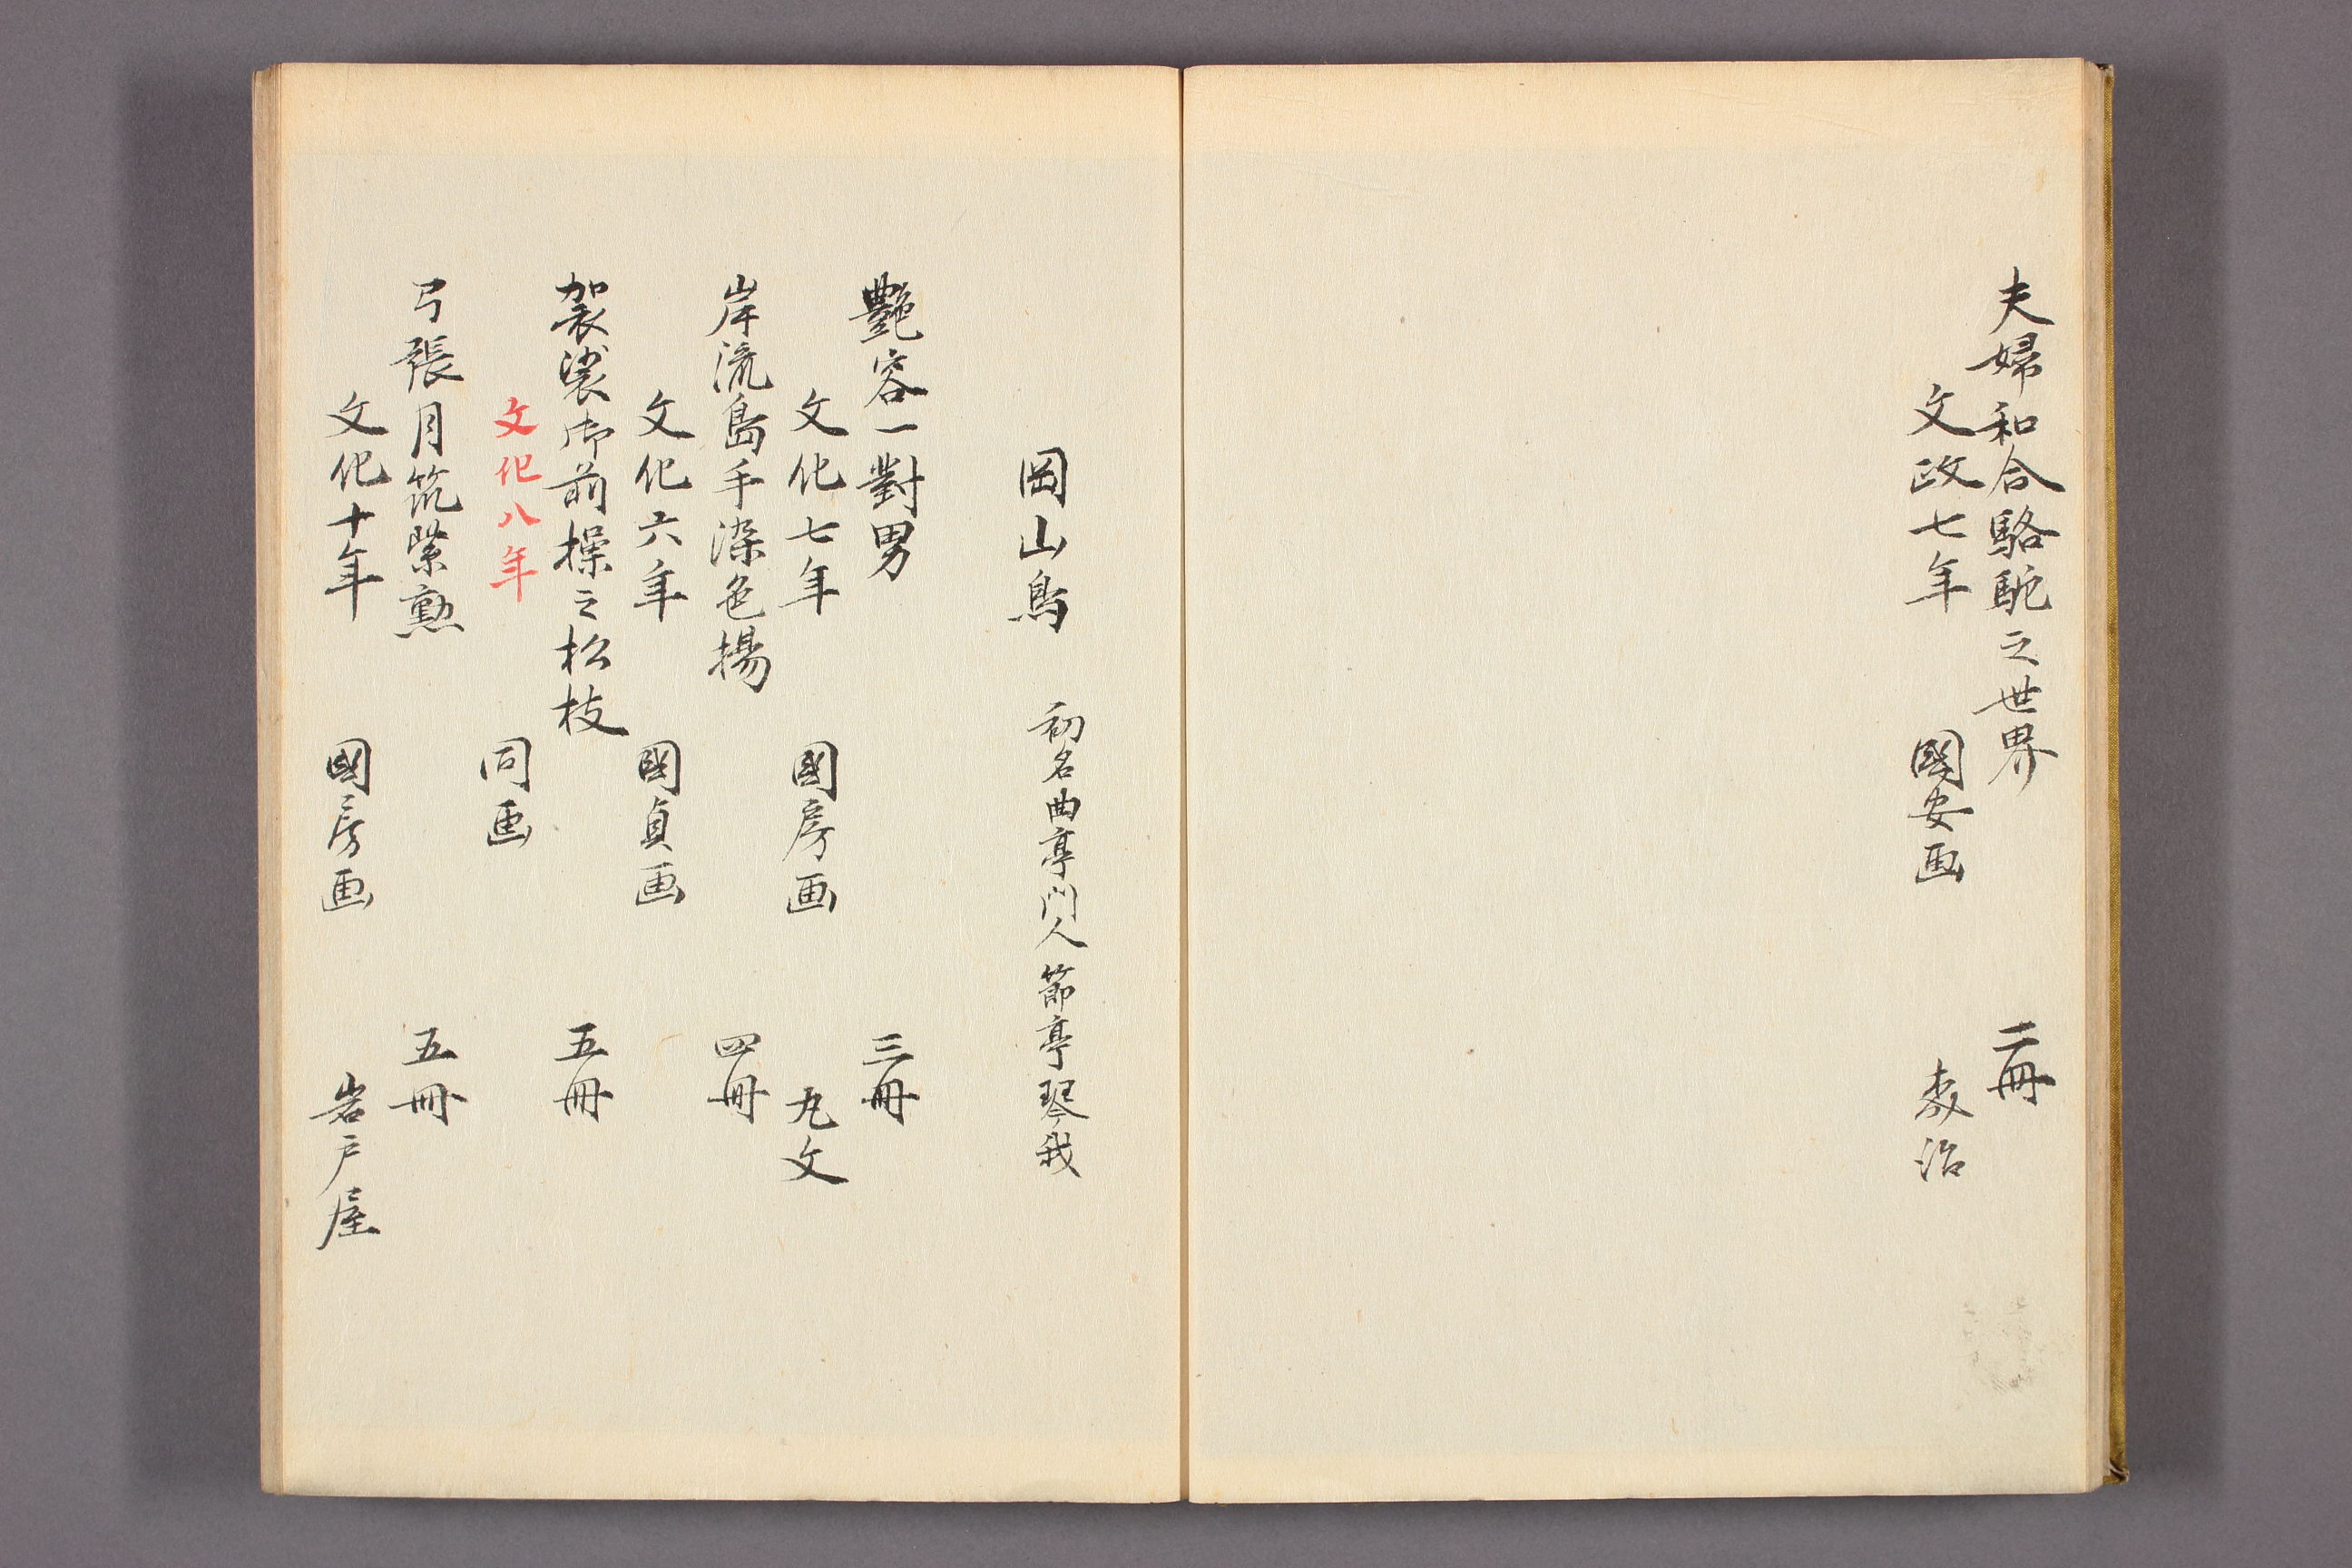 夫婦和合駱駝之世界　二冊
文政七年　國安画　森治
岡山鳥　初名曲亭門人節亭琴我
艶容一對男　三冊
文化七年　國房画　丸文
岸流島手染色揚　四冊
文化六年　國貞画
袈裟御前操之松枝　五冊
文化八年　同画
弓張月筑紫勲　五冊
文化十年　國房画　岩戸屋